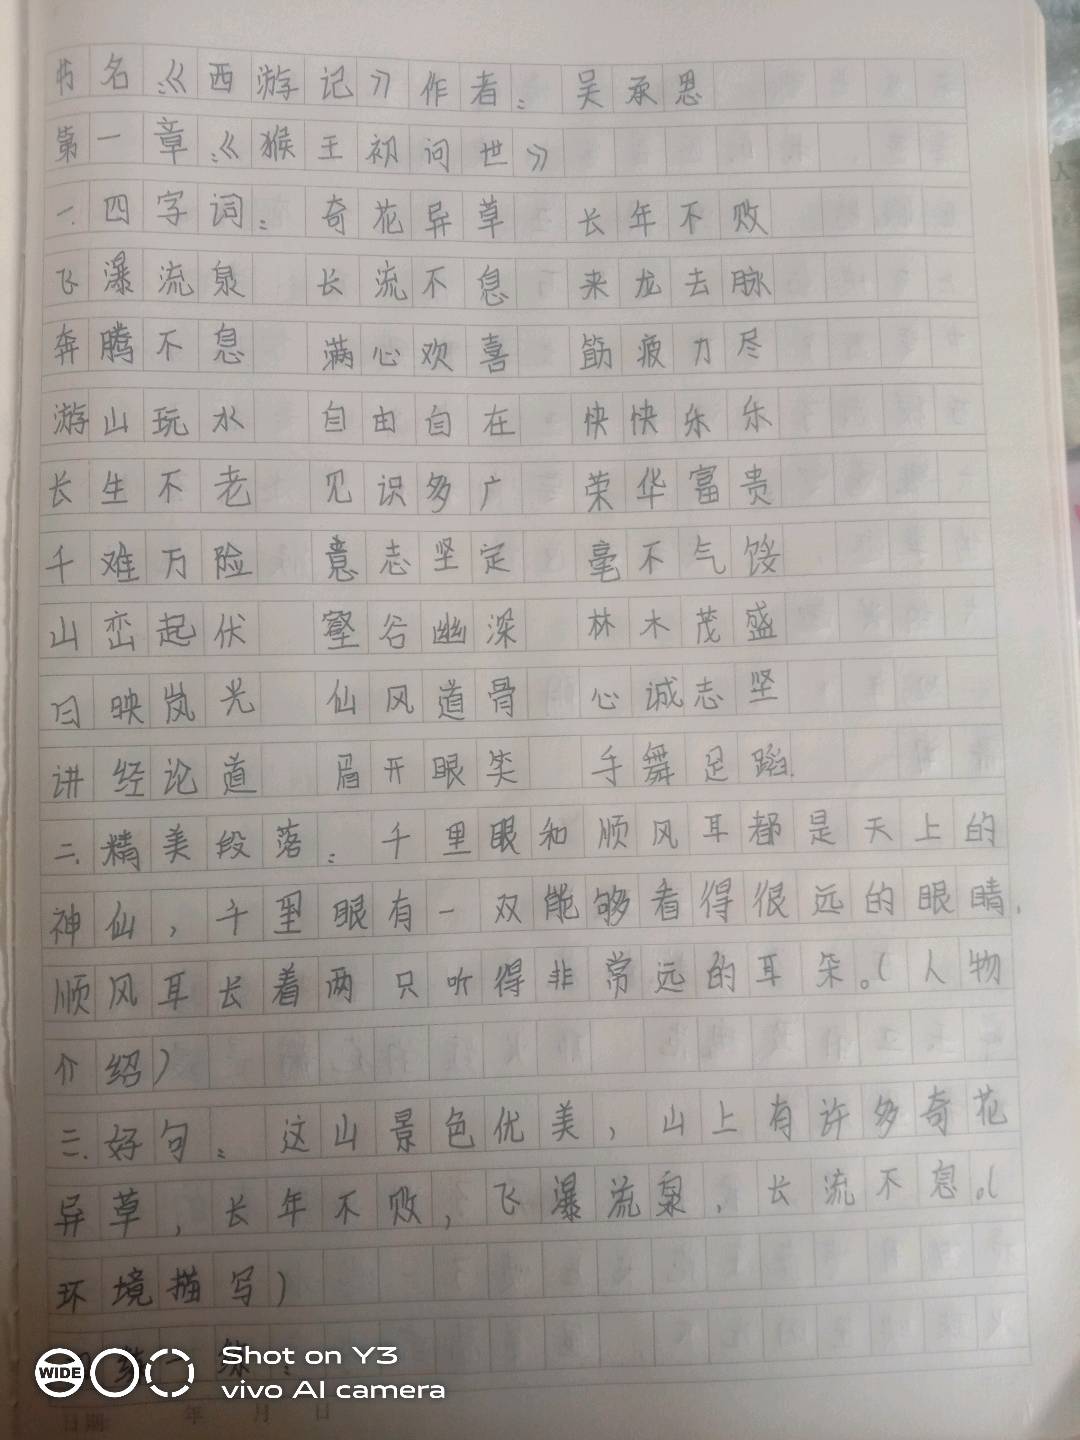 书名:《西游记》作者:吴承恩
第一章:《猴王初问世》
一.四字词:奇花异草 长年不败
飞瀑流泉 长流不息 来龙去脉
奔腾不息 满心欢喜 筋疲力尽
游山玩水 自由自在 快快乐乐
长生不老 见识多广 荣华富贵
千难万险 意志坚定 毫不气馁
山峦起伏 壑谷幽深 林木茂盛
日映岚光 仙风道骨 心诚志坚
讲经论道 眉开眼笑 手舞足蹈.
二.精美段落:千里眼和顺风耳都是天上的
神仙,千里眼有一双能够看得很远的眼睛,
顺风耳长着两只听得非常远的耳朵。(人物
介绍)
三.好句:这山景色优美,山上有许多奇花
异草,长年不败,飞瀑流泉,长流不息。(
环境描写)
练一练:
WIDE
Shot on Y3
vivo AI camera
日期: 年 月 日